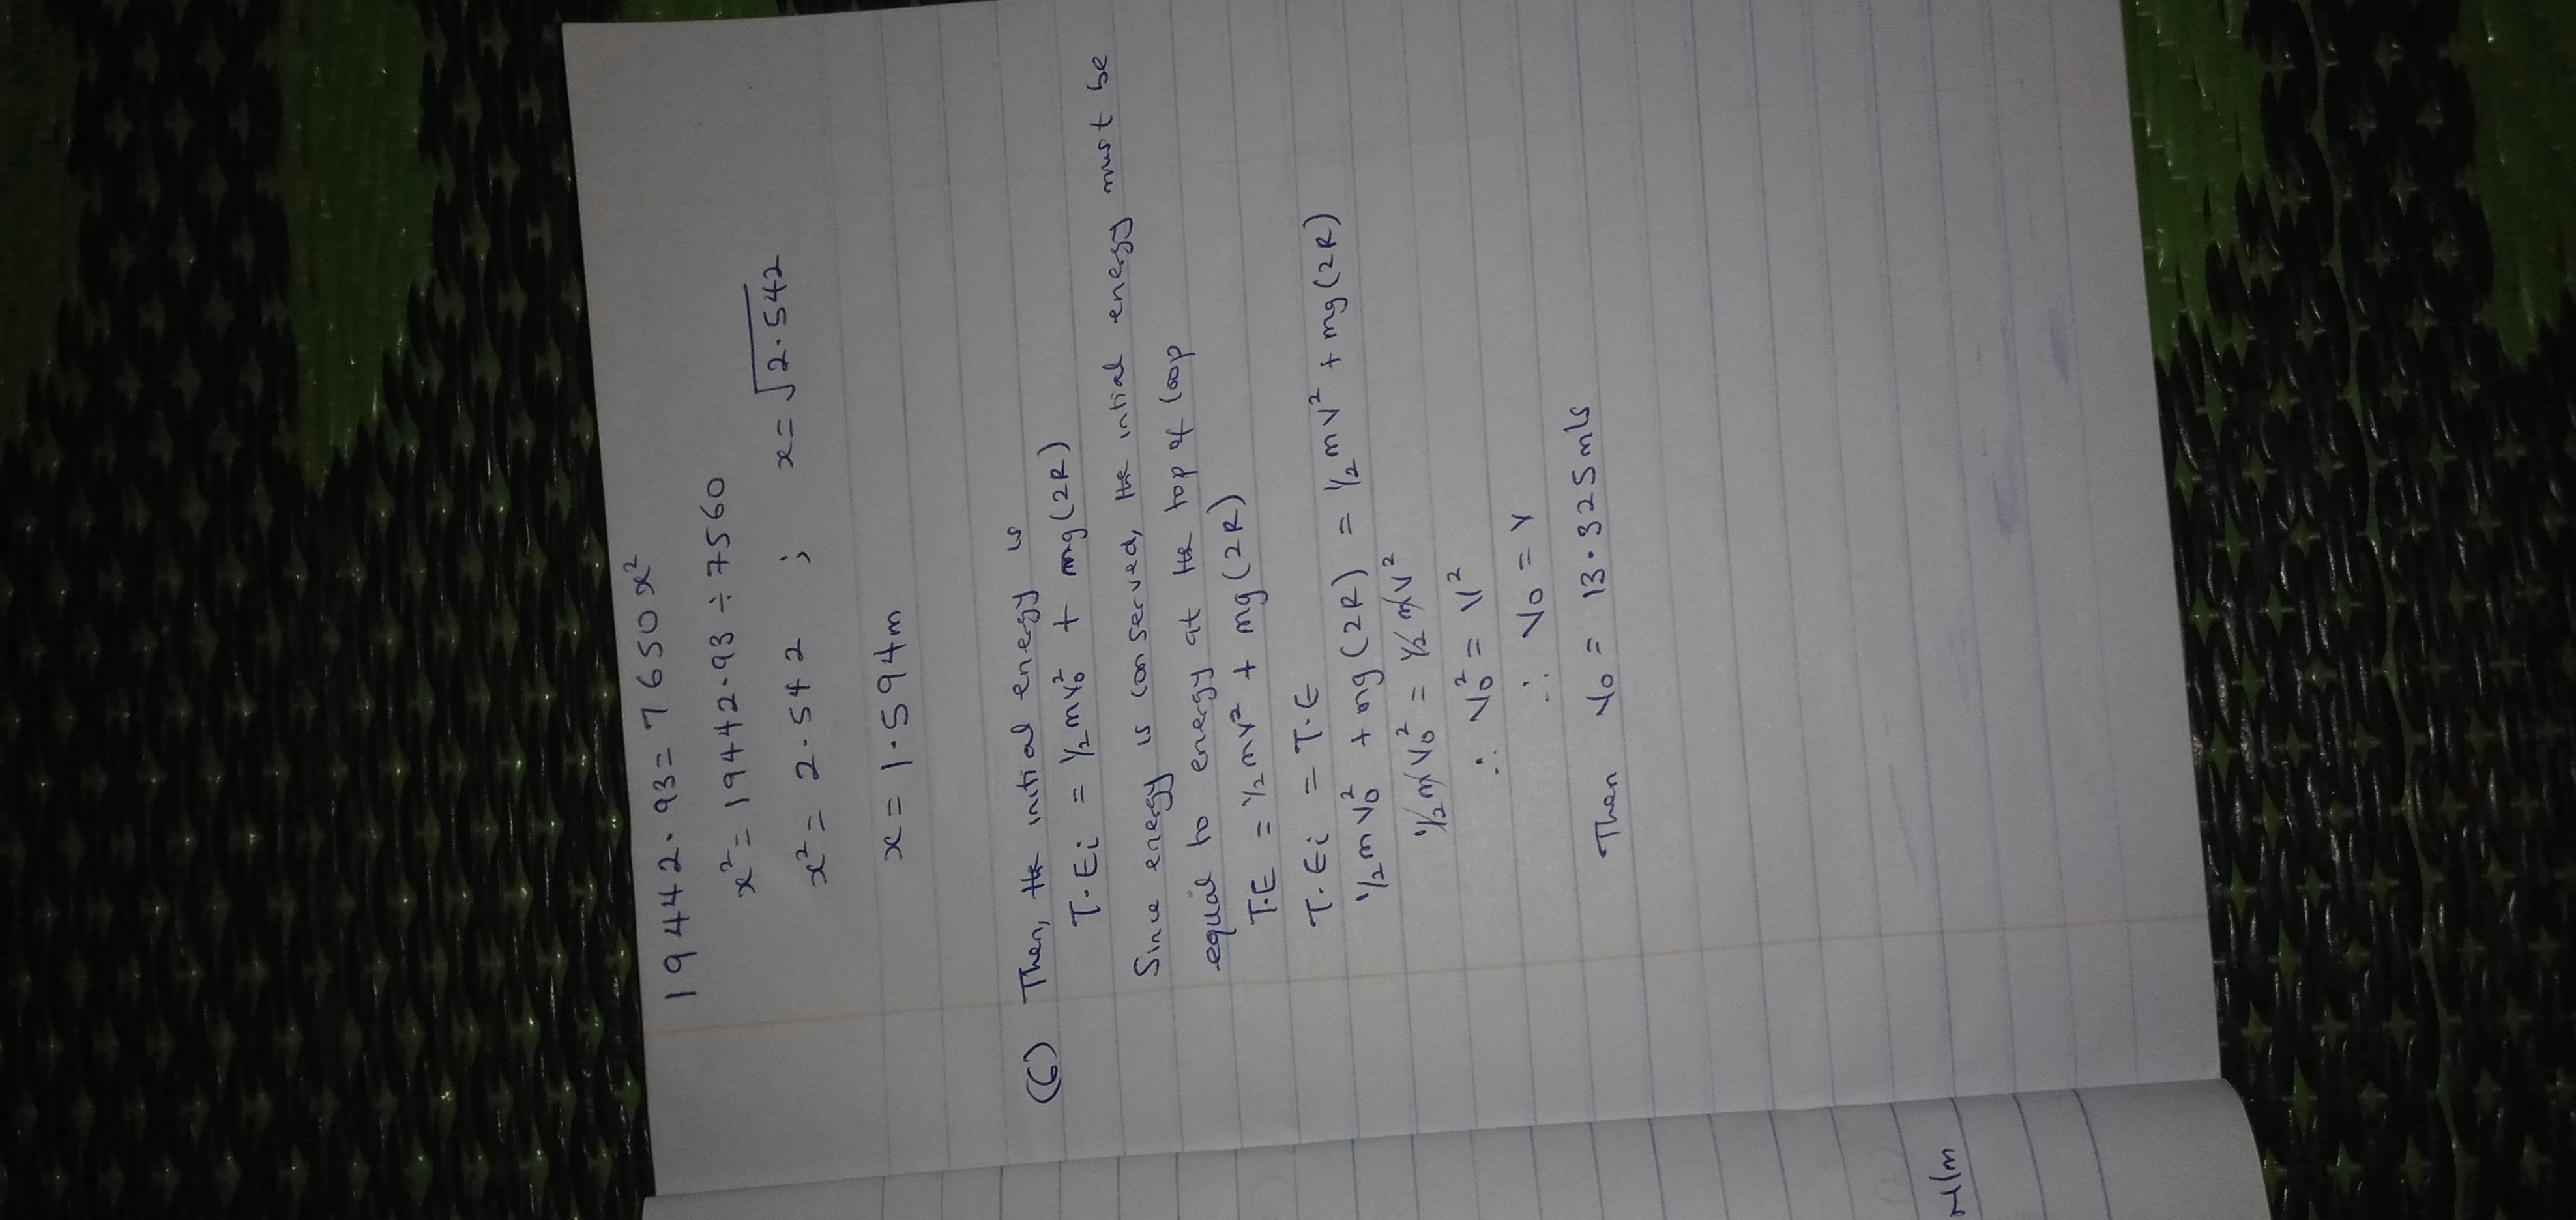 19442.93 = 7650x²
x² = 19442.93 ÷ 7560
x² = 2.542 ; x = √2.542
x = 1.594m
(6) Then, the initial energy is
T.Ei = ½mv₀² + mg(2R)
Since energy is conserved, the intial energy must be
equal to energy at the top of loop
T.E = ½mv² + mg(2R)
T.Ei = T.E
½mv₀² + mg(2R) = ½mv² + mg(2R)
½mv₀² = ½mv²
∴ v₀² = v²
∴ v₀ = v
Then v₀ = 13.325m/s
N/m